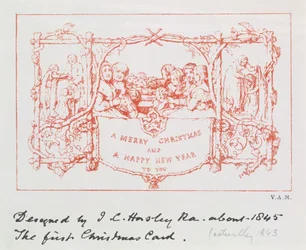 A MERRY CHRISTMAS
AND
A HAPPY NEW YEAR
TO YOU
V.A.M.
Designed by J C Horsley Ra. about 1845
The first Christmas Card. (actually 1843